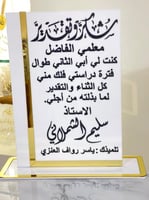 شكر وتقدير
معلمي الفاضل
كنت لي أبي الثاني طوال
فترة دراستي فلك مني
كل الثناء والتقدير
لما بذلته من أجلي.
الاستاذ
سليم الشملاني
تلميذك : ياسر رواف العنزي